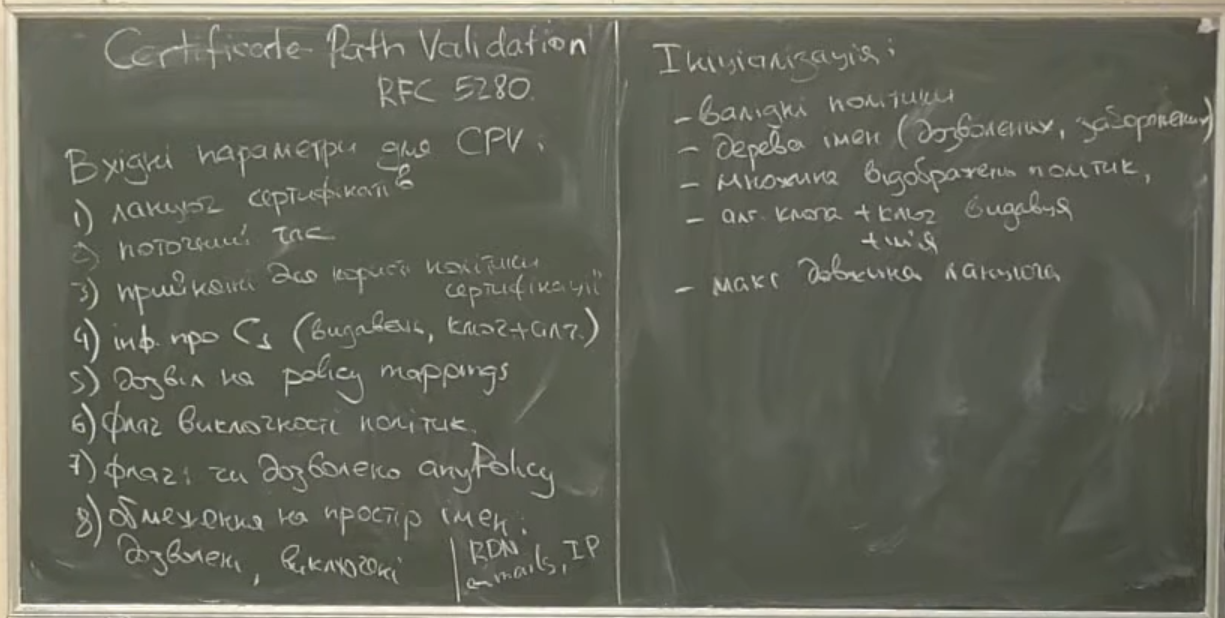 Certificate Path Validation
RFC 5280.
Вхідні параметри для CPV:
1) ланцюг сертифікатів
2) поточний час
3) прийнятні для користі політики
сертифікації
4) інф. про C₁ (видавець, ключ+алг.)
5) дозвіл на policy mappings
6) флаг виключності політик.
7) флаг: чи дозволено anyPolicy
8) обмеження на простір імен:
дозволені, виключені
RDN
emails, IP
Ініціалізація:
- валідні політики
- дерева імен (дозволених, заборонених)
- множина відображень політик,
- алг. ключа + ключ видавця
+ ім'я
- макс довжина ланцюга